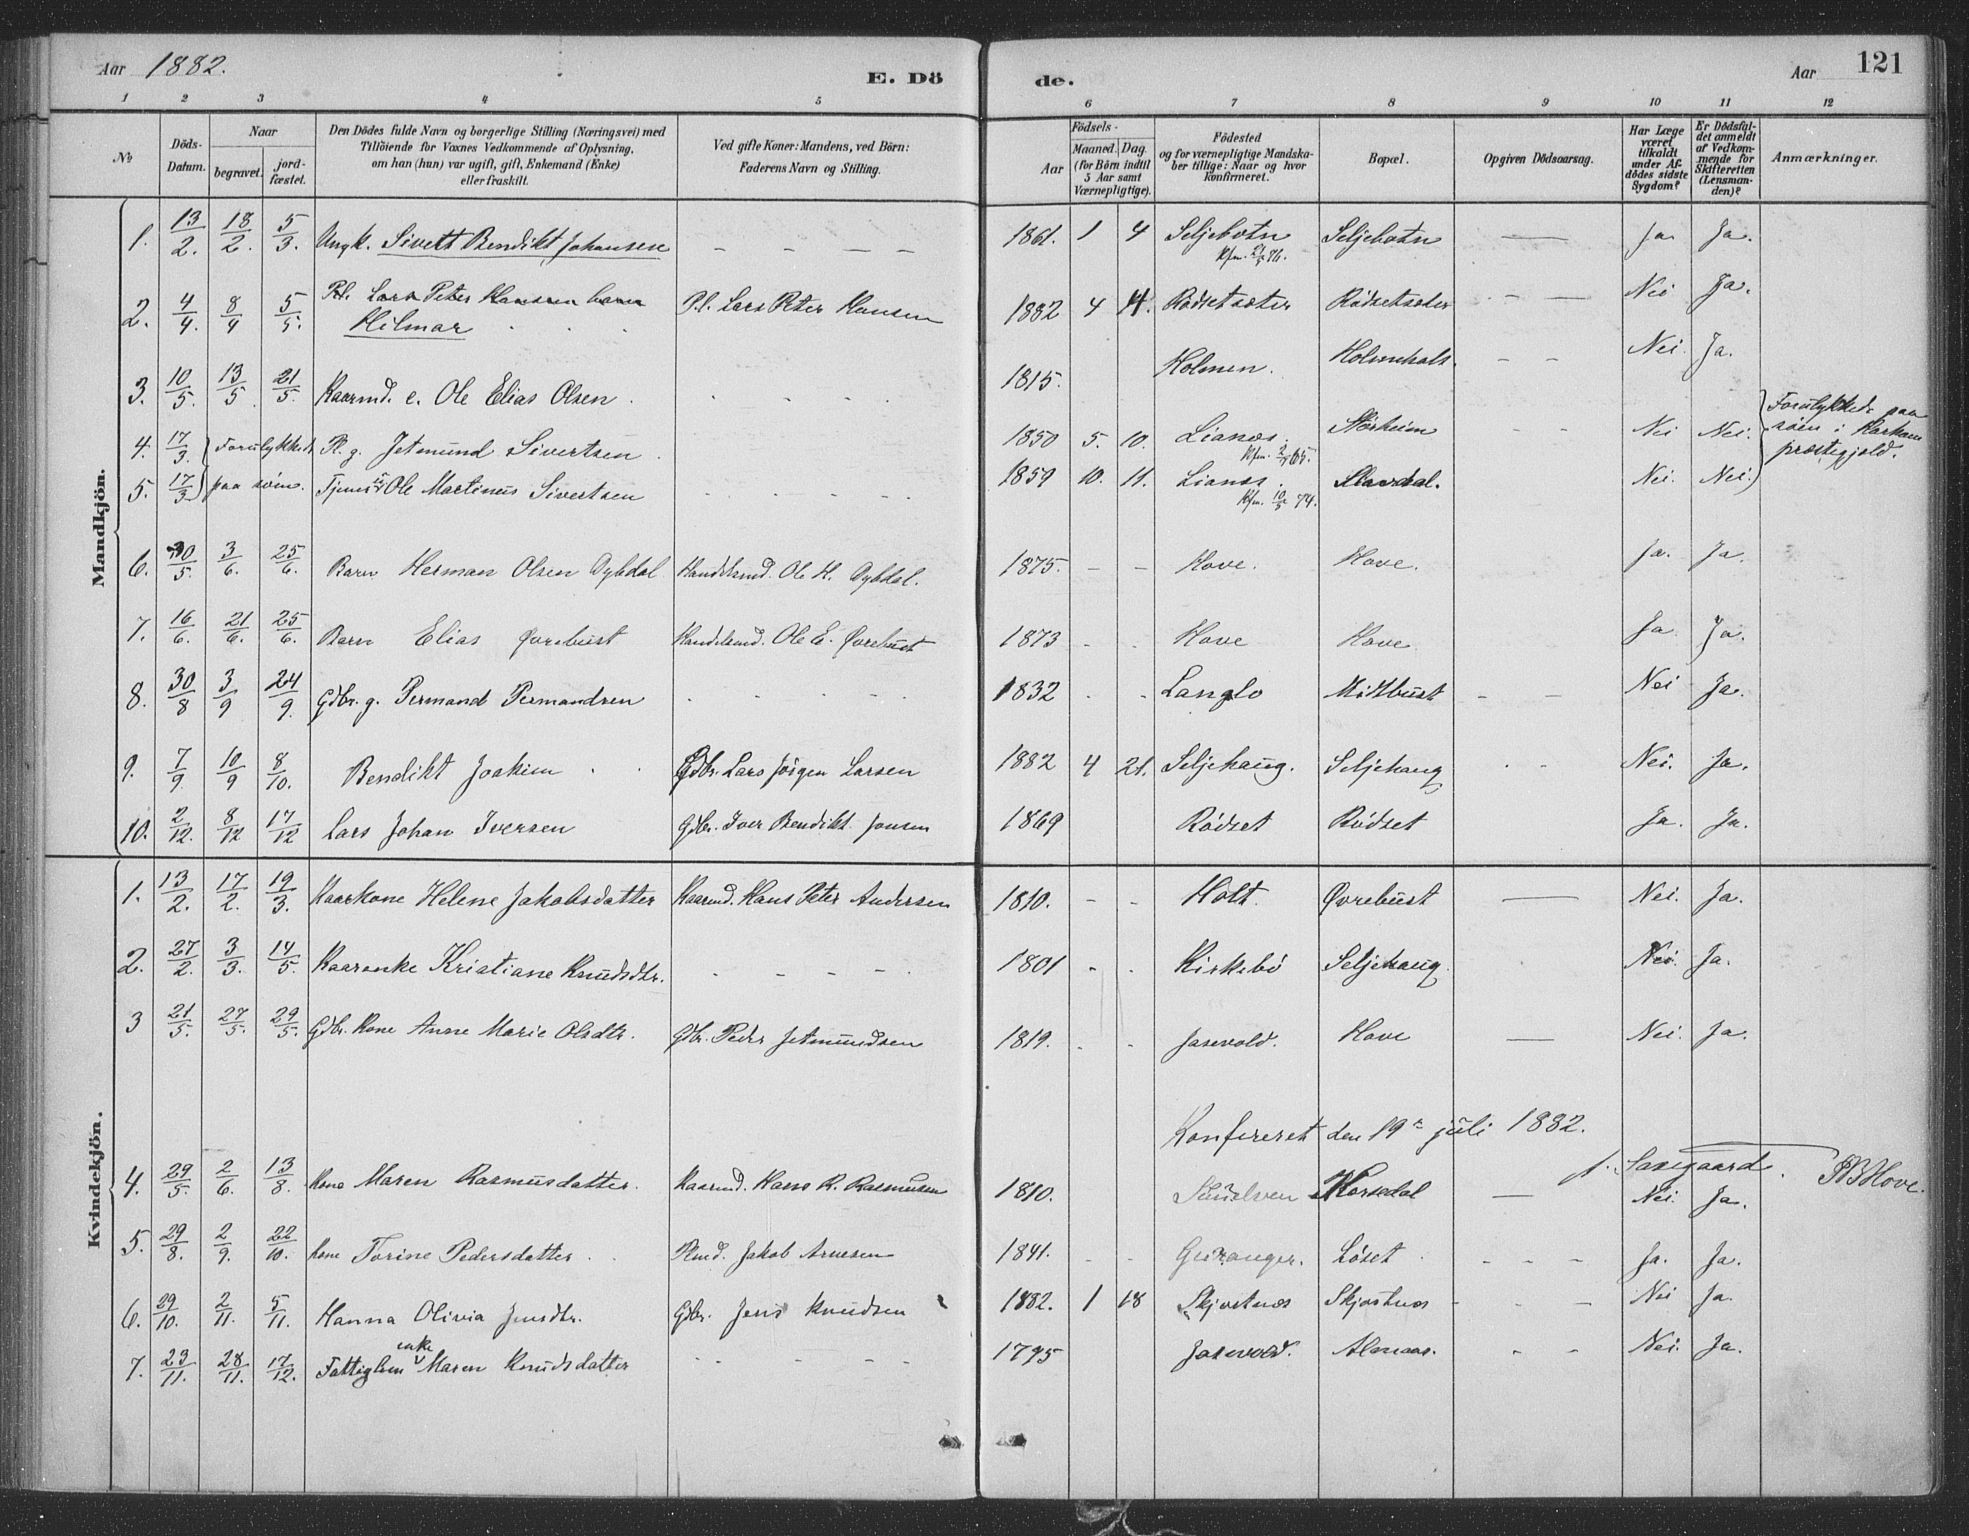 Aar 1882. E. Dö de. Aar 121
1 2 3 4 5 6 7 8 9 10 11 12
No
Döds-Datum.
Naar
begravet.
jord-fæstet.
Den Dödes fulde Navn og borgerlige Stilling (Næringsvei) med
Tilföiende for Voxnes Vedkommende af Oplysning,
om han (hun) var ugift, gift, Enkemand (Enke)
eller fraskilt.
Ved gifte Koner: Mandens, ved Börn:
Faderens Navn og Stilling.
Födsels-
Aar
Maaned. Dag.
(for Börn indtil
5 Aar samt
Værnepligtige).
Födested
og for værnepligtige Mandska-
ber tillige: Naar og hvor
konfirmeret.
Bopæl.
Opgiven Dödsaarsag.
Har Læge
været
tilkaldt
under Af-
dödes sidste
Sygdom?
Er Dödsfal-
det anmeldt
af Vedkom-
mende for
Skifteretten
(Lensman-
den)?
Anmærkninger.
Mandkjön.
1. 13/2. 18/2. 5/3. Ungk. Sivert Bendikt Johansen – – – – 1861. 1 4 Seljebotn Seljebotn — Ja. Ja.
Kfm. 76.
2. 4/4. 8/4 5/5. Pl. Lars Peter Hansens barn Pl. Lars Peter Hansen 1882 4 Rödsetsæter Rödsetsæter - – – Nei Ja.
Hilmar
3. 10/5. 13/5. 21/5. Kaarmd. e. Ole Elias Olsen. 1815. Holmen. – – Nei. Ja.
4. 17/3. Forulykkede Pl. g. Jetmund Sivertsen. 1850 5. 10. Lianæs. Störheim Nei Nei. Forulykkede paa
Kfm. 65. söen i Harhams
5. 17/3 paa söen. Tjenes Ole Martinus Sivertsen 1859 10. 11. Lianæs. Slavdal. Nei. Nei. præstegjeld.
Kfm. 10/5 74.
6. 30/5. 3/6. 25/6. Barn Herman Olsen Dybdal. Handelsmd. Ole H. Dybdal. 1875. – – Hove. Hove. Ja. Ja.
7. 16/6. 21/6. 25/6. Barn Elias Övrebust Handelsmd. Ole E. Övrebust 1873 - - Hove Hove Ja. Ja.
8. 30/8 3/9 24/9. Gdbr. g. Permand Permandsen 1832 - - Langlo Midtbust - – Nei Ja.
9. 7/9. 10/9 8/10. Bendikt Joakim Gdbr. Lars Jörgen Larsen 1882 4 21. Seljehaug. Seljehaug - - Nei. Ja.
10. 2/12. 8/12 17/12 Lars Johan Iversen Gdbr. Iver Bendikt Jonsen 1869 Rödset Rödset Ja. Ja.
Kvindekjön.
1. 13/2. 17/2. 19/3. Kaarkone Helene Jakobsdatter Kaarmd. Hans Peter Andersen 1810. – – Holt. Övrebust — Nei. Ja.
2. 27/2. 3/3. 14/5. Kaarenke Kristiane Knudsdtr. – – – – 1801 - - Kirkebö Seljehaug. Nei. Ja.
3 21/5. 27/5. 29/5. Gdbr. Kone Anne Marie Olsdtr. Gdbr. Peder Jetmundsen 1819. - - Jasevold. Hove — Nei. Ja.
Konfereret den 19de juli 1882.
f. Saxegaard. PBHove.
4. 29/5. 2/6. 13/8. Kone Maren Rasmusdatter. Kaarmd. Hans R. Rasmusen 1810. Korsdal — Nei. Ja.
5. 29/8. 2/9. 22/10. Kone Torine Pedersdatter. Plmd. Jakob Arnesen 1841. - - Geiranger. Löset - - - Ja. Ja.
6. 29/10. 2/11. 5/11. Hanna Olivia Jensdtr. Gdbr. Jens Knudsen 1882. 1 18 Skjortnæs Skjortnæs - - - Nei Ja.
enke
7. 23/11. 28/11. 17/12. Fattiglem Maren Knudsdatter - – – - 1795 Jasevold. Almaas. - - Nei. Ja.